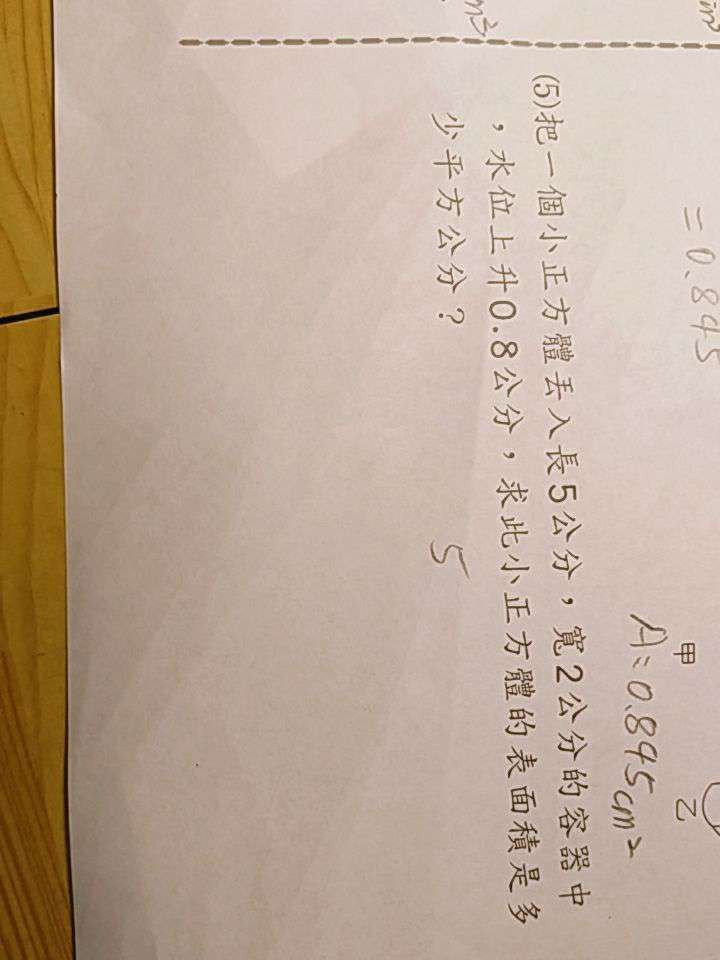 m³
in³
= 0.845
甲
乙
A = 0.845cm²
(5)把一個小正方體丟入長5公分，寬2公分的容器中
，水位上升0.8公分，求此小正方體的表面積是多
少平方公分？
5